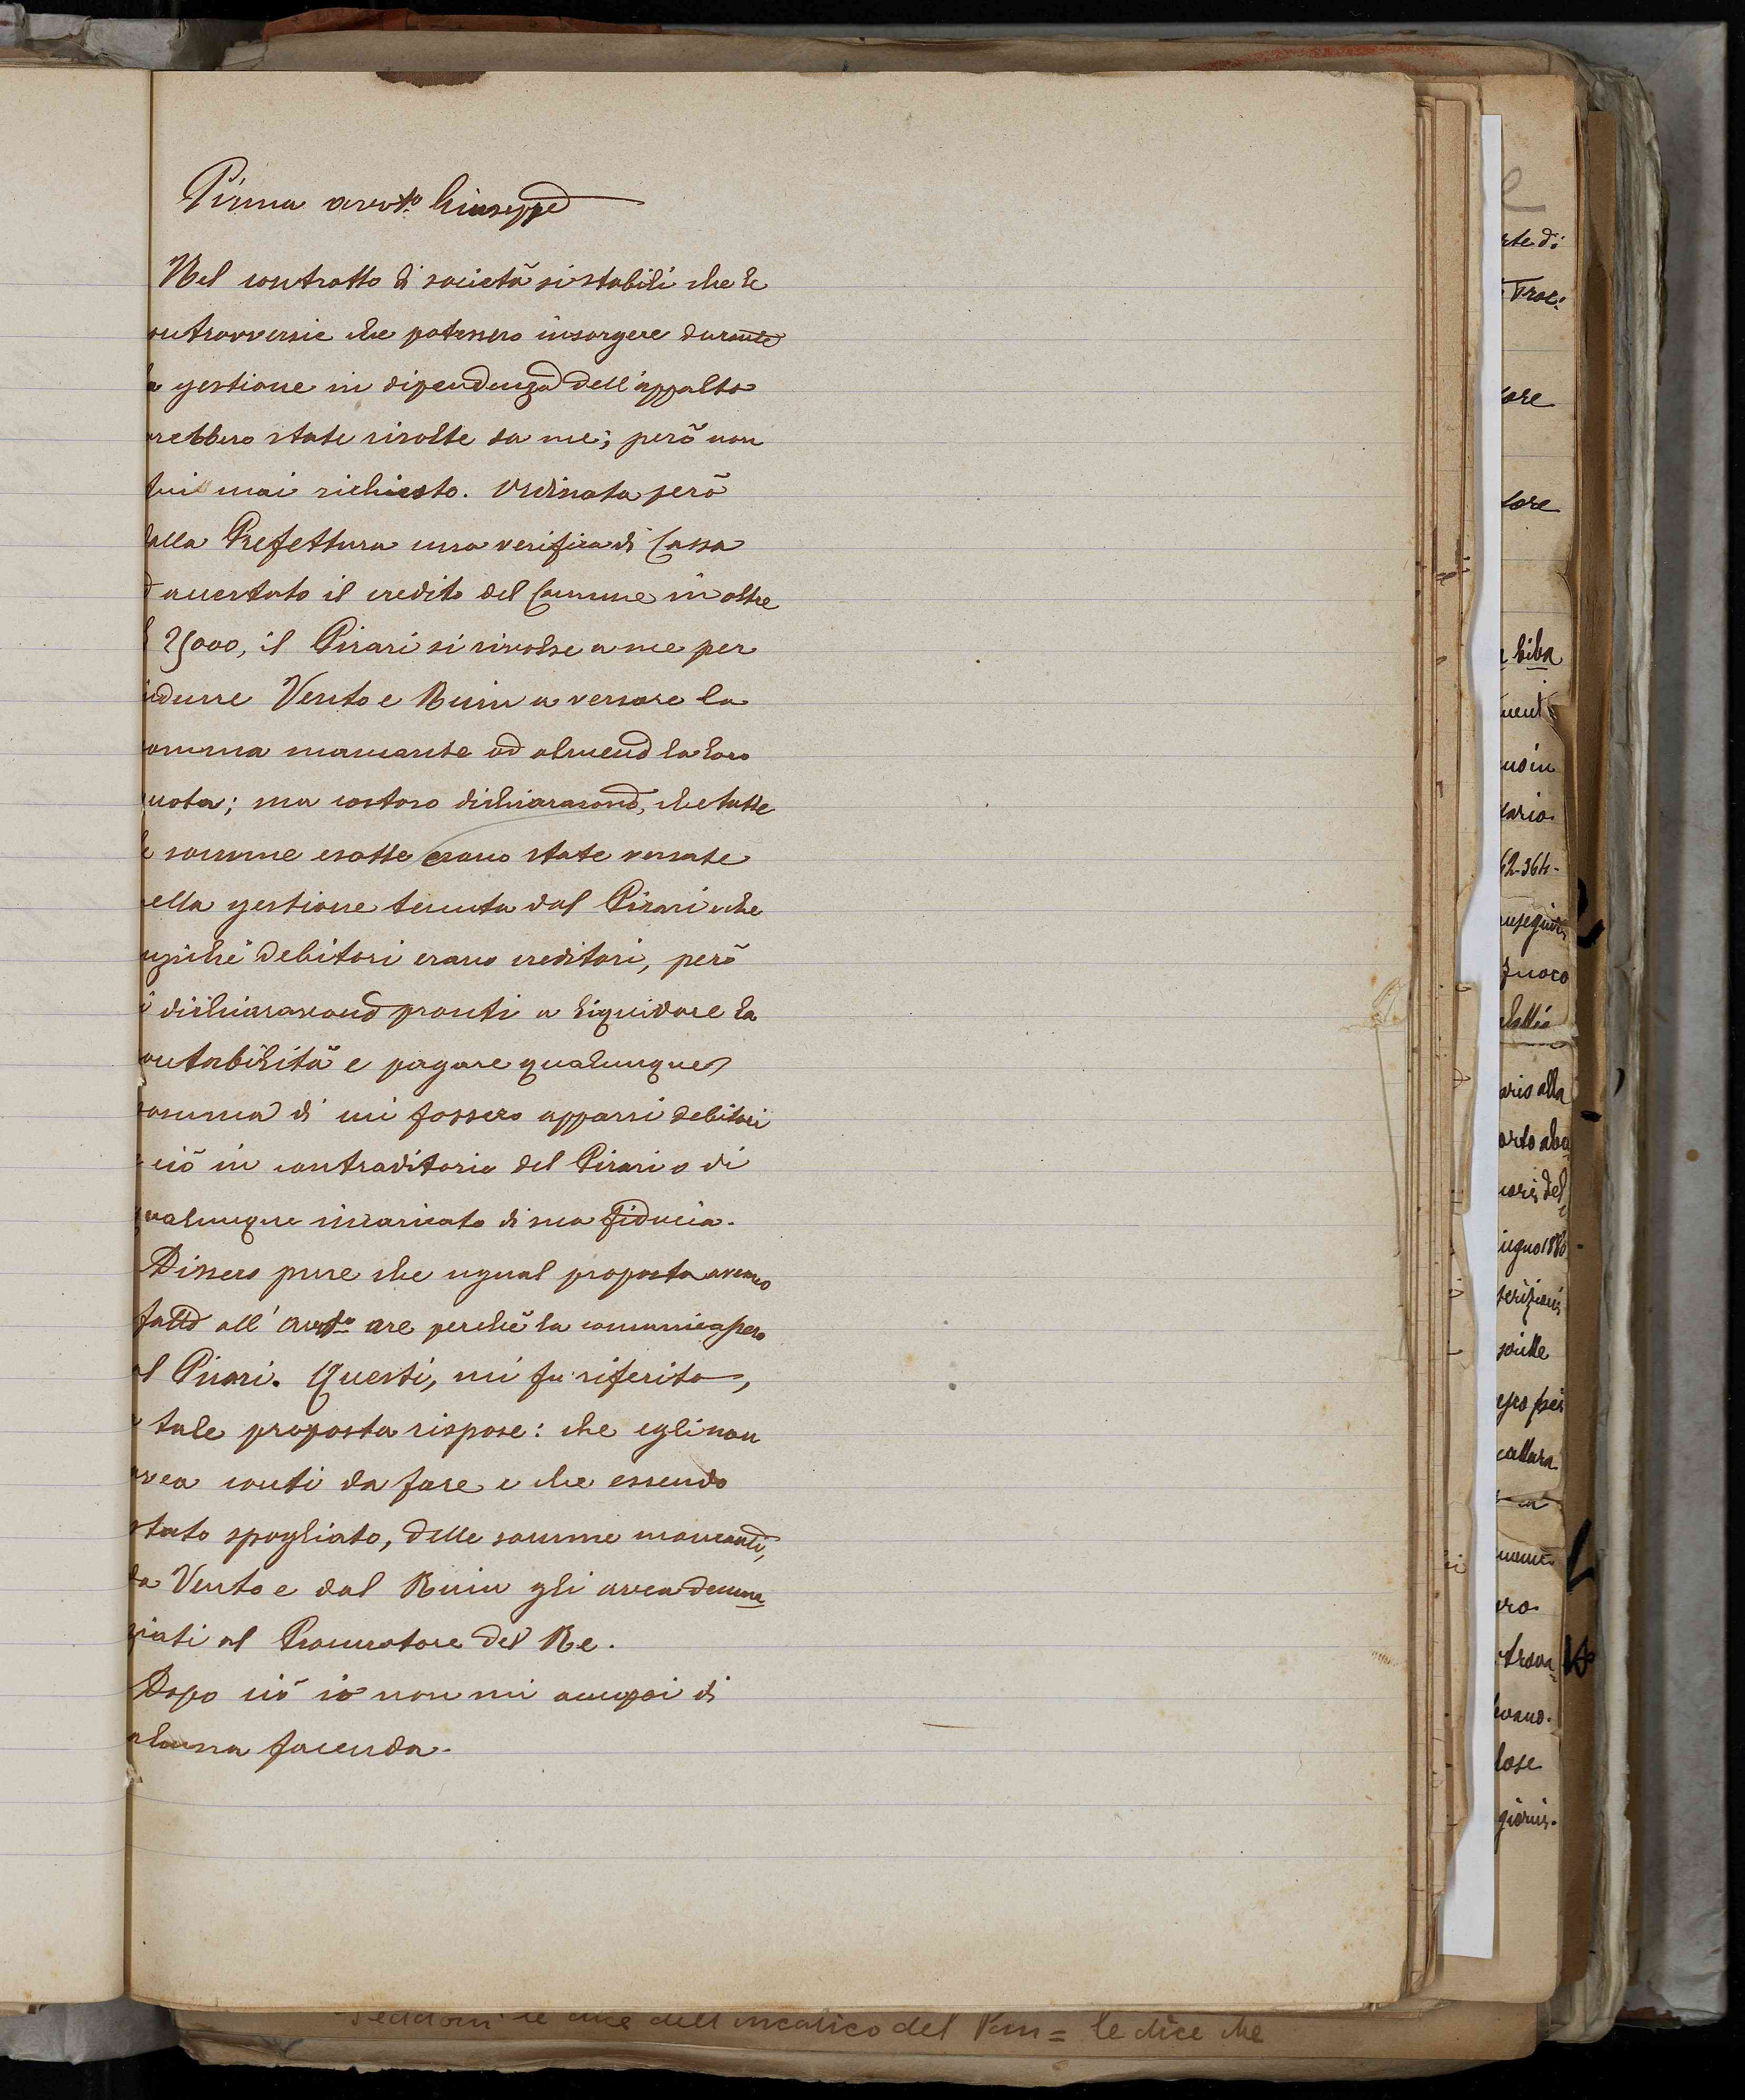 Pinna avv.to Giuseppe
Nel contratto di società si stabilì che le
ontrovversie che potessero insorgere durante
a gestione in dipendenza dell'appalto
arebbero state risolte da me; però non
fui mai richiesto. Ordinata però
dalla Prefettura una verifica di Cassa
d accertato il credito del Comune in oltre
£ 25000, il Pirari si rivolse a me per
idurre Vento e Ruiu a versare la
omma mancante od almeno la loro
uota; ma costoro dichiararono, che tutte
le somme esatte erano state versate
nella gestione tenuta dal Pirari e che
nzichè debitori erano creditori, però
i dichiararono pronti a liquidare la
ontabilità e pagare qualunque
omma di cui fossero apparsi debitori
e ciò in contraditorio del Pirari o di
qualunque incaricato di sua fiducia.
Dissero pure che ugual proposta aveano
fatto all' Avv.to Are perchè la comunicassero
al Pirari. Questi, mi fu riferito,
a tale proposta rispose: che egli non
avea conti da fare e che essendo
stato spogliato, delle somme mancanti,
da Vento e dal Ruiu gli avea denun
ziati al Procuratore del Re.
Dopo ciò io non mi occupai di
alcuna facenda.
rte di
ore
tore
ment
ario
62-364-
fuoco
ario alla
iugno 1886
giorni.
del Pm = le dice che